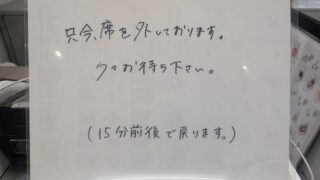 只今、席を外しております。
少々お待ち下さい。
(15分前後で戻ります。)